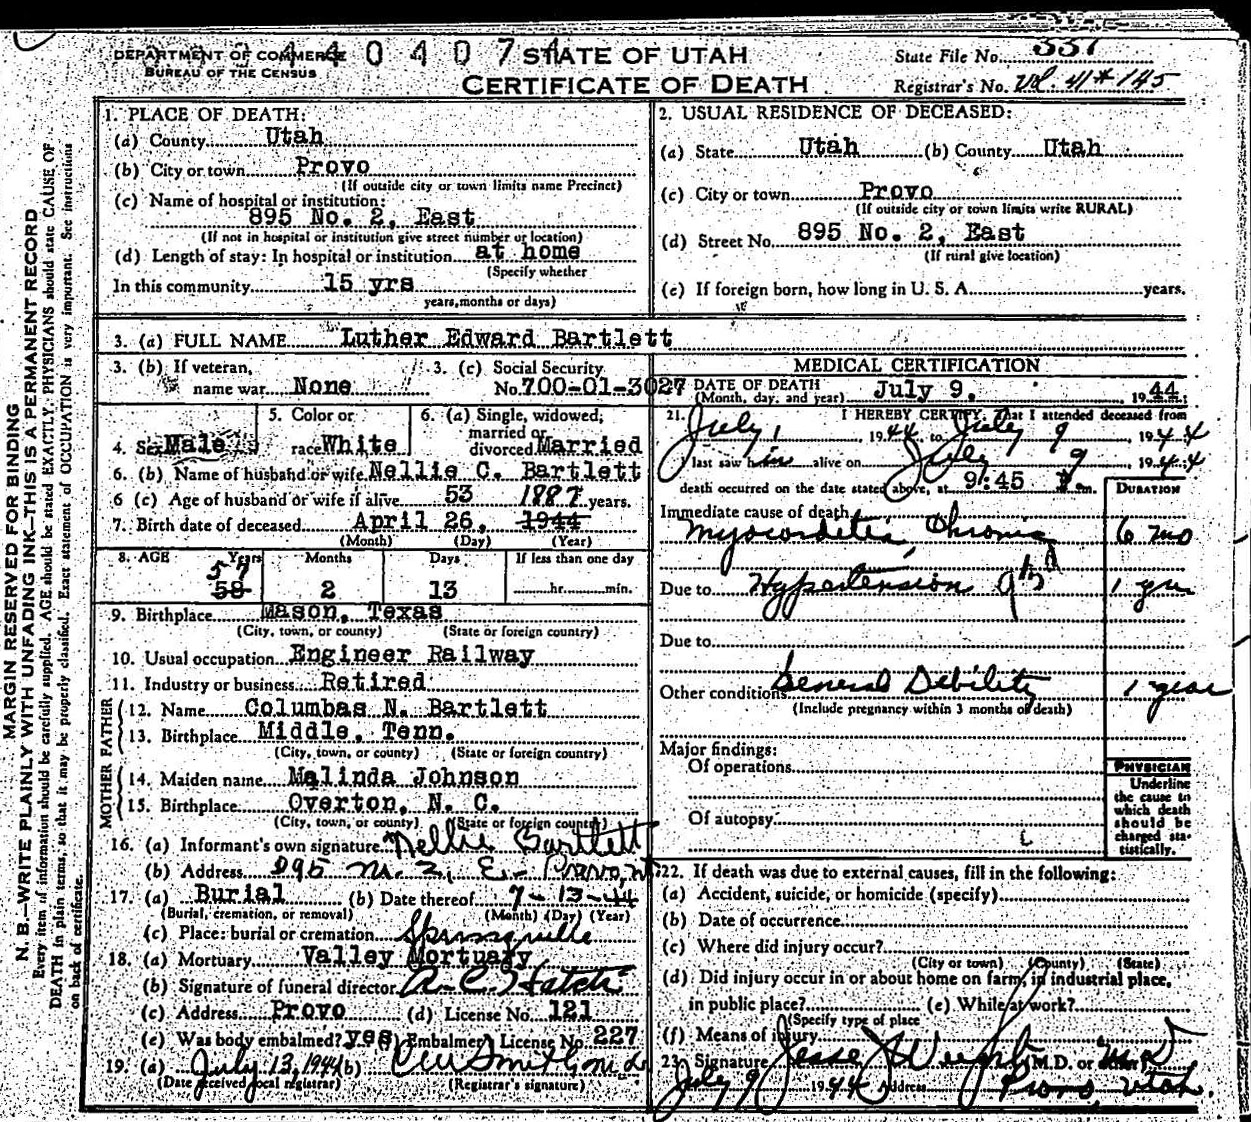 DEPARTMENT OF COMMERCE
BUREAU OF THE CENSUS
440407
STATE OF UTAH
CERTIFICATE OF DEATH
State File No. 337
Registrar's No. Vol. 41 # 145
MARGIN RESERVED FOR BINDING
N. B.—WRITE PLAINLY WITH UNFADING INK—THIS IS A PERMANENT RECORD
Every item of information should be carefully supplied. AGE should be stated EXACTLY. PHYSICIANS should state CAUSE OF
DEATH in plain terms, so that it may be properly classified. Exact statement of OCCUPATION is very important. See instructions
on back of certificate.
1. PLACE OF DEATH:
(a) County Utah
(b) City or town Provo
(If outside city or town limits name Precinct)
(c) Name of hospital or institution:
895 No. 2, East
(If not in hospital or institution give street number or location)
(d) Length of stay: In hospital or institution at home
(Specify whether
In this community 15 yrs
years, months or days)
2. USUAL RESIDENCE OF DECEASED:
(a) State Utah (b) County Utah
(c) City or town Provo
(If outside city or town limits write RURAL)
(d) Street No. 895 No. 2, East
(If rural give location)
(e) If foreign born, how long in U. S. A. years.
3. (a) FULL NAME Luther Edward Bartlett
3. (b) If veteran, name war None
3. (c) Social Security No. 700-01-3027
4. Sex Male
5. Color or race White
6. (a) Single, widowed, married or divorced Married
6. (b) Name of husband or wife Nellie C. Bartlett
6 (c) Age of husband or wife if alive 53 years.
1887
7. Birth date of deceased April 26, 1944
(Month) (Day) (Year)
8. AGE Years Months Days If less than one day
57
58 2 13 hr. min.
9. Birthplace Mason, Texas
(City, town, or county) (State or foreign country)
10. Usual occupation Engineer Railway
11. Industry or business Retired
FATHER
12. Name Columbas N. Bartlett
13. Birthplace Middle, Tenn.
(City, town, or county) (State or foreign country)
MOTHER
14. Maiden name Malinda Johnson
15. Birthplace Overton, N. C.
(City, town, or county) (State or foreign country)
16. (a) Informant's own signature Nellie Bartlett
(b) Address 895 No. 2, E - Provo, Ut
17. (a) Burial (b) Date thereof 7-13-44
(Burial, cremation, or removal) (Month) (Day) (Year)
(c) Place: burial or cremation Springville
18. (a) Mortuary Valley Mortuary
(b) Signature of funeral director A. C. Hatch
(c) Address Provo (d) License No. 121
(e) Was body embalmed? yes (f) Embalmer License No. 227
19. (a) July 13, 1944 (b)
(Date received local registrar) (Registrar's signature)
MEDICAL CERTIFICATION
20. DATE OF DEATH
(Month, day, and year) July 9, 1944
21. I HEREBY CERTIFY, That I attended deceased from
July 1, 1944 to July 9, 1944
I last saw him alive on July 9, 1944
death occurred on the date stated above, at 9:45 P. m.
DURATION
Immediate cause of death
Myocarditis, Chronic 6 mo
Due to Hypertension 1 yr
Due to
Other conditions General Debility 1 year
(Include pregnancy within 3 months of death)
Major findings:
Of operations
Of autopsy
PHYSICIAN
Underline
the cause to
which death
should be
charged sta-
tistically.
22. If death was due to external causes, fill in the following:
(a) Accident, suicide, or homicide (specify)
(b) Date of occurrence
(c) Where did injury occur?
(City or town) (County) (State)
(d) Did injury occur in or about home on farm, in industrial place,
in public place? (e) While at work?
(Specify type of place
(f) Means of injury
23. Signature Jesse J Weight (M.D. or other) M D
July 9 1944 Address Provo, Utah.